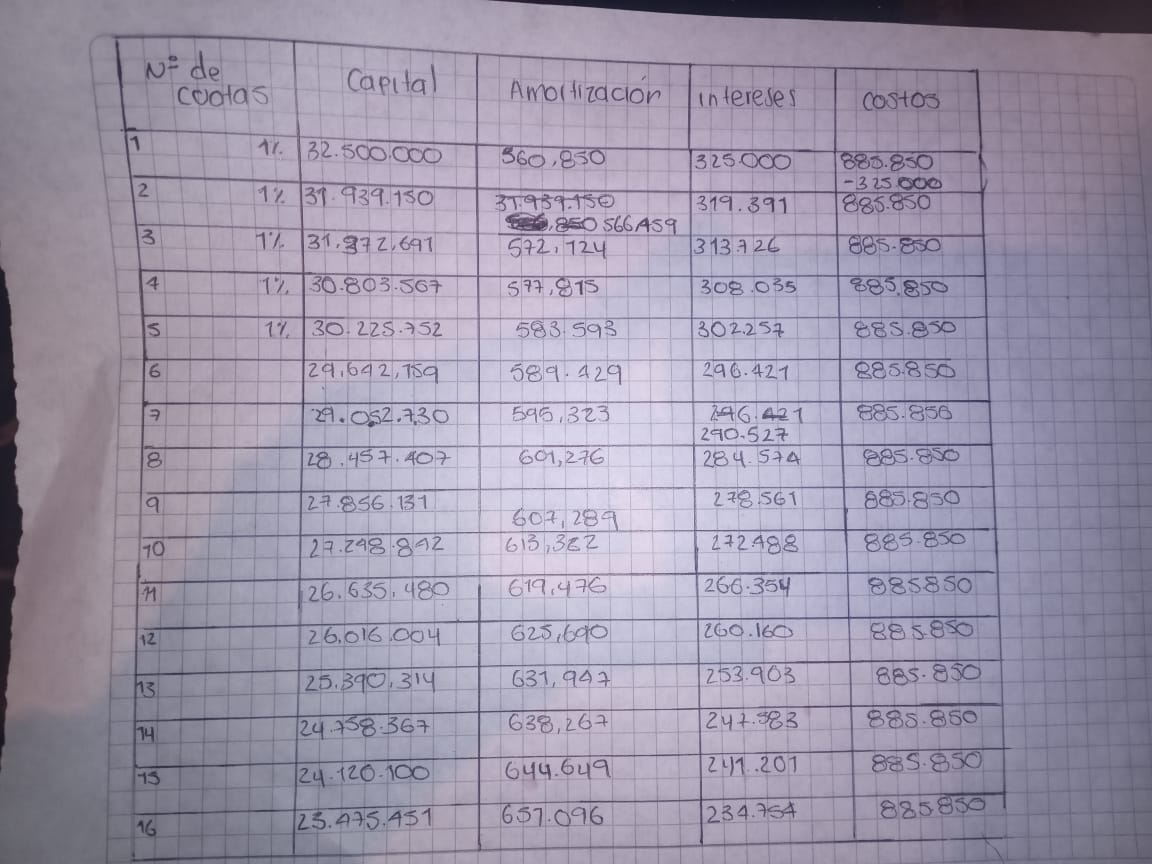 Nº de cuotas Capital Amortización intereses costos
1 1% 32.500.000 560,850 325.000 885.850
-325.000
2 1% 31.939.150 31.939.150 319.391 885.850
,850 566.459
3 1% 31,372,691 572,124 313.726 885.850
4 1% 30.803.567 577,815 308.035 885.850
5 1% 30.225.752 583.593 302.257 885.850
6 29,642,159 589.429 296.421 885.850
7 29.052.730 595,323 296.421 885.850
290.527
8 28.457.407 601,276 284.574 885.850
9 27.856.131 607,289 278.561 885.850
10 27.248.842 613,362 272488 885.850
11 26.635,480 619,476 266.354 885850
12 26,016.004 625,690 260.160 885.850
13 25.390,314 631,947 253.903 885.850
14 24.758.367 638,267 247.583 885.850
15 24.120.100 644.649 241.201 885.850
16 23.475.451 651.096 234.754 885850